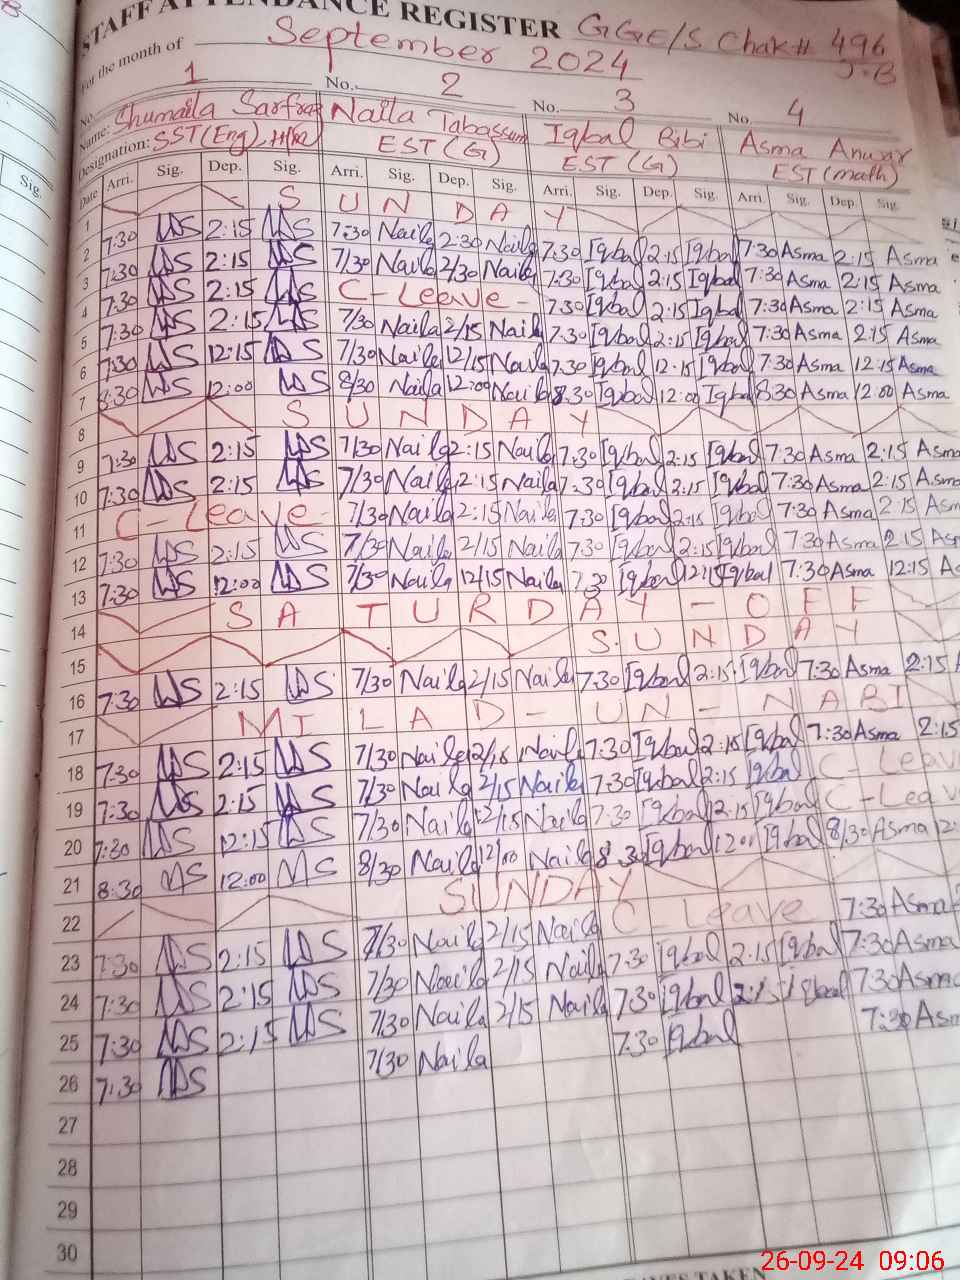 STAFF ATTENDANCE REGISTER GGE/S Chak# 496 J-B
For the month of September 2024
No. 1 No. 2 No. 3 No. 4
Name: Shumaila Sarfraz Naila Tabassum Iqbal Bibi Asma Anwar
Designation: SST(Eng), EST(G) EST(G) EST(math)
Date Arri. Sig. Dep. Sig. Arri. Sig. Dep. Sig. Arri. Sig. Dep. Sig. Arri. Sig. Dep. Sig.
1 S U N D A Y
2 7:30 2:15 7:30 Naila 2:30 Naila 7.30 Iqbal 2:15 Iqbal 7:30 Asma 2:15 Asma
3 7:30 2:15 7/30 Naila 2/30 Naila 7.30 Iqbal 2:15 Iqbal 7:30 Asma 2:15 Asma
4 7:30 2:15 C-Leave- 7.30 Iqbal 2:15 Iqbal 7:30 Asma 2:15 Asma
5 7:30 2:15 7/30 Naila 2/15 Naila 7.30 Iqbal 2:15 Iqbal 7:30 Asma 2:15 Asma
6 7:30 12:15 7/30 Naila 12/15 Naila 7.30 Iqbal 12:15 Iqbal 7:30 Asma 12:15 Asma
7 8:30 12:00 8/30 Naila 12:00 Naila 8.30 Iqbal 12:00 Iqbal 8:30 Asma 12:00 Asma
8 S U N D A Y
9 7:30 2:15 7/30 Naila 2:15 Naila 7.30 Iqbal 2:15 Iqbal 7:30 Asma 2:15 Asma
10 7:30 2:15 7/30 Naila 2:15 Naila 7.30 Iqbal 2:15 Iqbal 7:30 Asma 2:15 Asma
11 C-Leave- 7/30 Naila 2:15 Naila 7.30 Iqbal 2:15 Iqbal 7:30 Asma 2:15 Asma
12 7:30 2:15 7/30 Naila 2/15 Naila 7.30 Iqbal 2:15 Iqbal 7:30 Asma 2:15
13 7:30 12:00 7/30 Naila 12/15 Naila 7.30 Iqbal 12:15 Iqbal 7:30 Asma 12:15
14 S A T U R D A Y - O F F
15 S U N D A Y
16 7:30 2:15 7/30 Naila 2/15 Naila 7.30 Iqbal 2:15 Iqbal 7:30 Asma 2:15
17 M I L A D - U N - N A B I
18 7:30 2:15 7/30 Naila 2/15 Naila 7:30 Iqbal 2:15 Iqbal 7:30 Asma 2:15
19 7:30 2:15 7/30 Naila 2/15 Naila 7.30 Iqbal 2:15 Iqbal C-Leave
20 7:30 12:15 7/30 Naila 12/15 Naila 7.30 Iqbal 12:15 Iqbal C-Leave
21 8:30 12:00 8/30 Naila 12/00 Naila 8.30 Iqbal 12:00 Iqbal 8/30 Asma
22 SUNDAY
23 7:30 2:15 7/30 Naila 2/15 Naila C-Leave 7:30 Asma
24 7:30 2:15 7/30 Naila 2/15 Naila 7.30 Iqbal 2:15 Iqbal 7:30 Asma
25 7:30 2:15 7/30 Naila 2/15 Naila 7.30 Iqbal 2:15 Iqbal 7:30 Asma
26 7:30 7/30 Naila 7.30 Iqbal 7:30 Asm
27
28
29
30
26-09-24 09:06